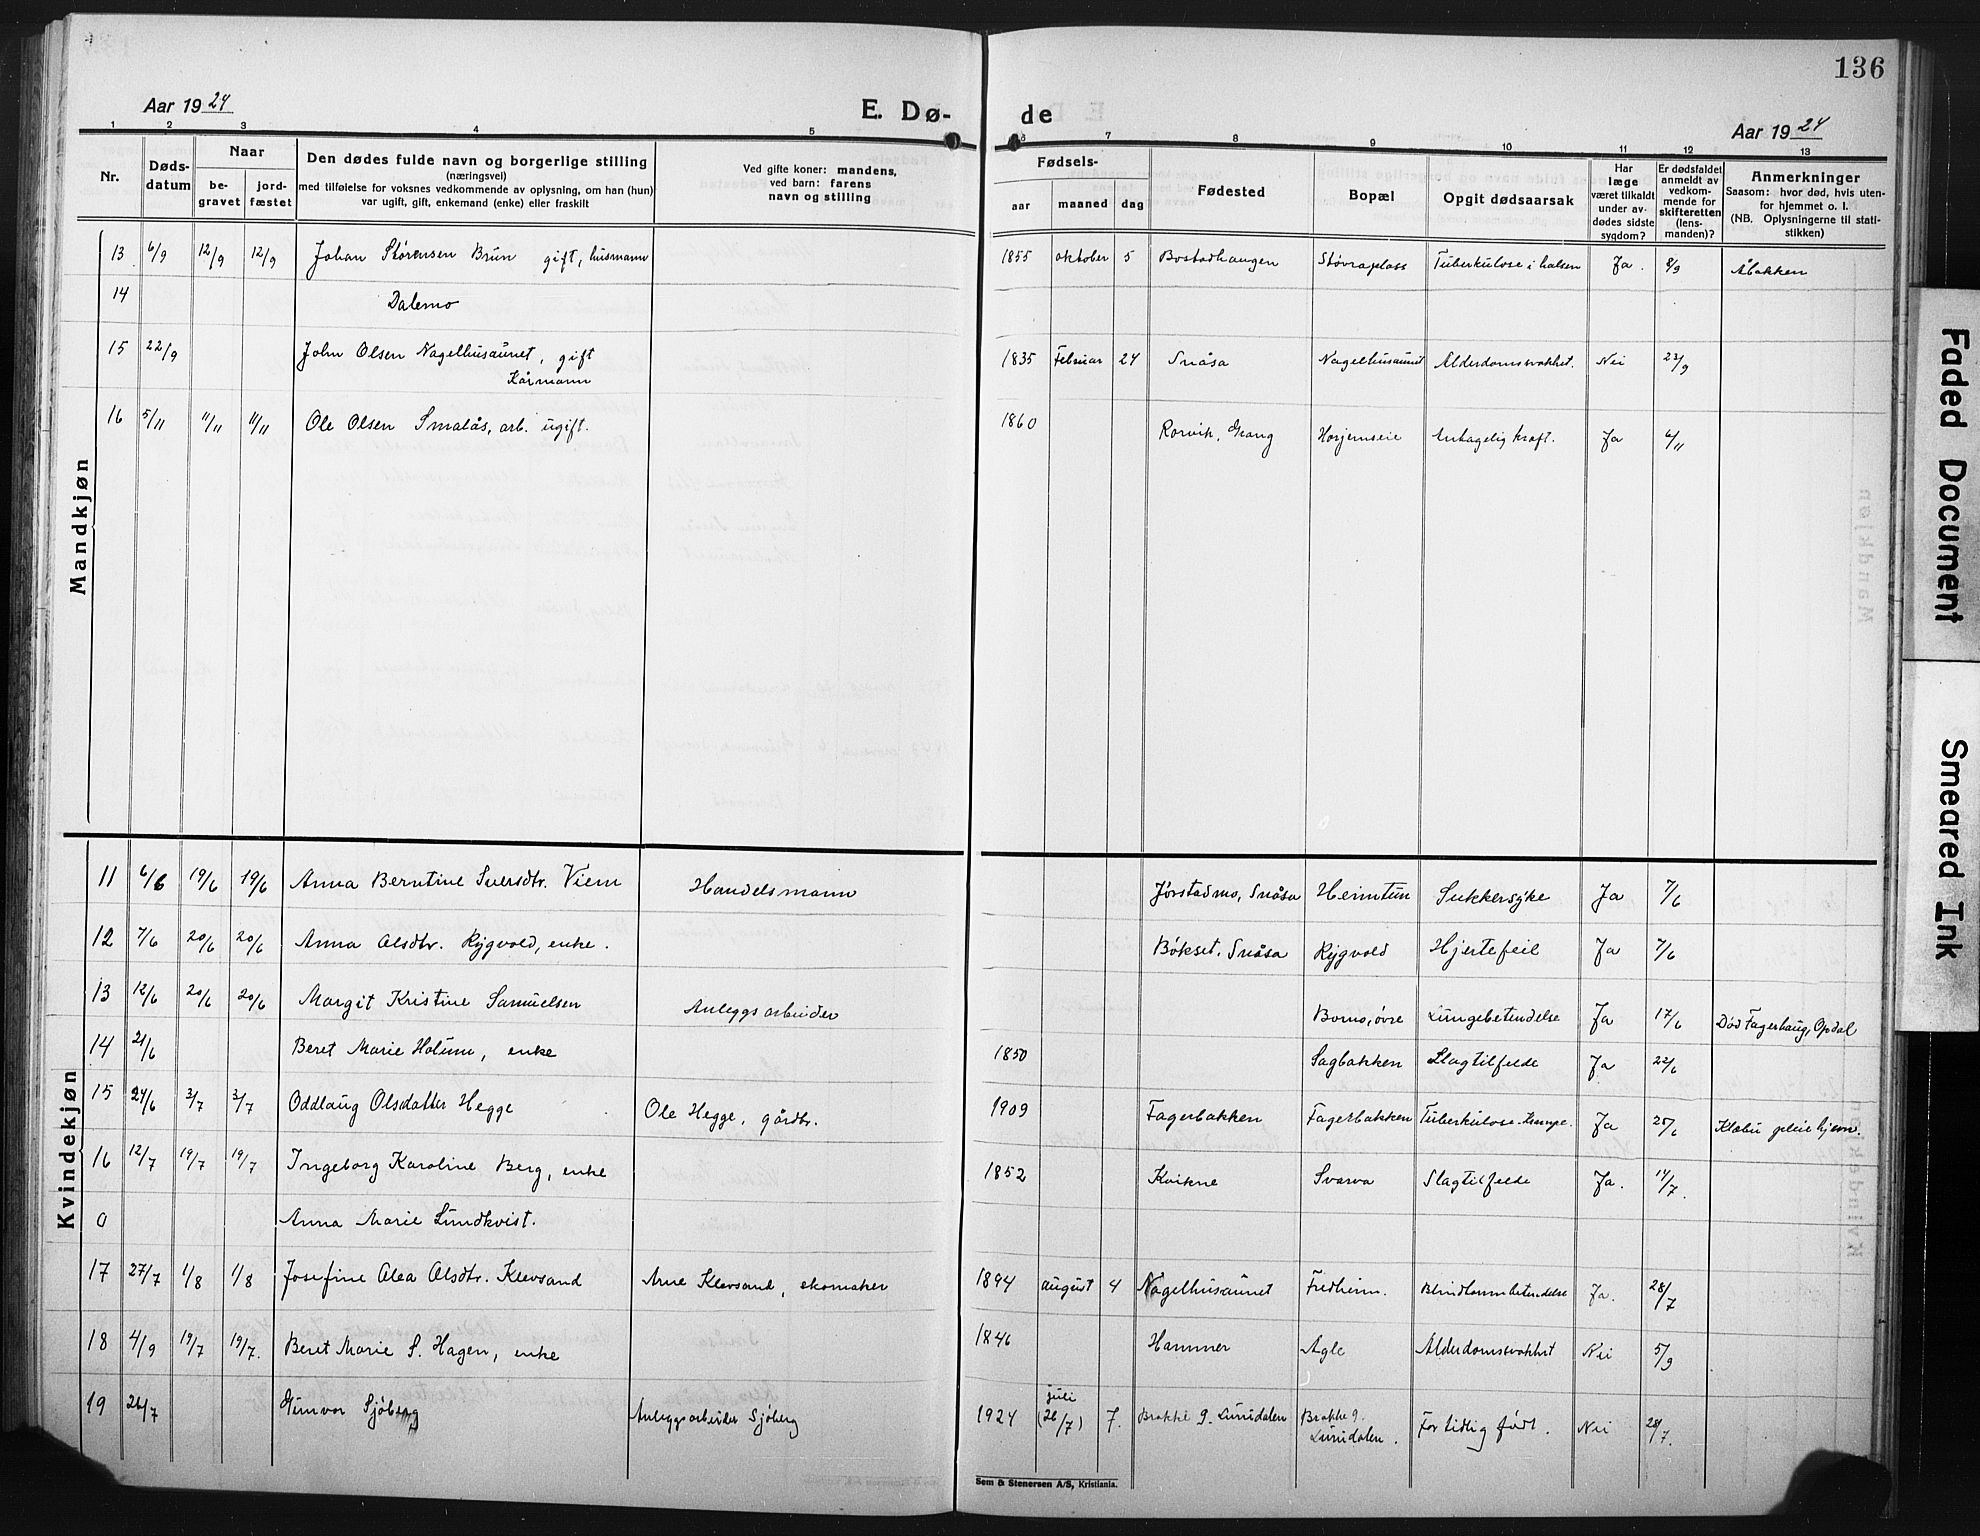 136
Aar 1924
E. Dø-
de
Aar 1924
1 2 3 4 5 6 7 8 9 10 11 12 13
Nr.
Døds-
datum
Naar
be-
gravet
jord-
fæstet
Den dødes fulde navn og borgerlige stilling
(næringsvei)
med tilføielse for voksnes vedkommende av oplysning, om han (hun)
var ugift, gift, enkemand (enke) eller fraskilt
Ved gifte koner: mandens,
ved barn: farens
navn og stilling
Fødsels-
aar maaned dag
Fødested
Bopæl
Opgit dødsaarsak
Har
læge
været tilkaldt
under av-
dødes sidste
sygdom?
Er dødsfaldet
anmeldt av
vedkom-
mende for
skifteretten
(lens-
manden)?
Anmerkninger
Saasom: hvor død, hvis uten-
for hjemmet o. l.
(NB. Oplysningerne til stati-
stikken)
Mandkjøn
13 6/9 12/9 12/9 Johan Størensen Brun gift, husmann 1855 oktober 5 Bostadhaugen Støvraplass Tuberkulose i halsen Ja. 8/9 Åbakken
14 Dalemo
15 22/9 John Olsen Nagelhusaunet, gift 1835 Februar 24 Snåsa Nagelhusaunet Alderdomsvakhet. Nei 23/9
Kårmann
16 5/11 11/11 11/11 Ole Olsen Smalås, arb. ugift. 1860 Rørvik, Grong Horjemseie Antagelig kræft. Ja 6/11
Kvindekjøn
11 6/6 19/6 19/6 Anna Berntine Sversdtr. Viem Handelsmann Jørstadmo, Snåsa Heimtun Sukkersyke Ja 7/6
12 7/6 20/6 20/6 Anna Olsdtr. Rygvold, enke. Bøkset, Snåsa Rygvold Hjertefeil Ja 7/6
13 12/6 20/6 20/6 Margit Kristine Samuelsen Anleggsarbeider Bomo, øvre Lungebetendelse Ja 17/6 Død Fagerhaug, Opdal
14 21/6 Beret Marie Holum, enke 1850 Sagbakken Slagtilfelde Ja 22/6
15 24/6 3/7 3/7 Oddlaug Olsdatter Hegge Ole Hegge, gårdbr. 1909 Fagerbakken Fagerbakken Tuberkulose-lunge. Ja 25/6 Klæbu pleiehjem.
16 12/7 19/7 19/7 Ingeborg Karoline Berg, enke 1852 Kvikne Svarva Slagtilfelde Ja. 14/7.
0 Anna Marie Lundkvist.
17 27/7 1/8 1/8 Josefine Alea Olsdtr. Klevsand Arne Klevsand, skomaker 1894 august 4 Nagelhusaunet Fredheim. Blindtarmbetendelse Ja. 28/7
18 4/9 19/7 19/7. Beret Marie S. Hagen, enke 1846 Hammer Agle Alderdomsvakhet Nei 5/9
19 26/7 Gunvor Sjøberg Anleggsarbeider Sjøberg 1924 juli (26/7) 7. Brakke 9. Lurudalen Brakke 9. Lurudalen. For tidlig født. Nei 28/7.
Sem & Stenersen A/S, Kristiania.
Faded Document
Smeared Ink